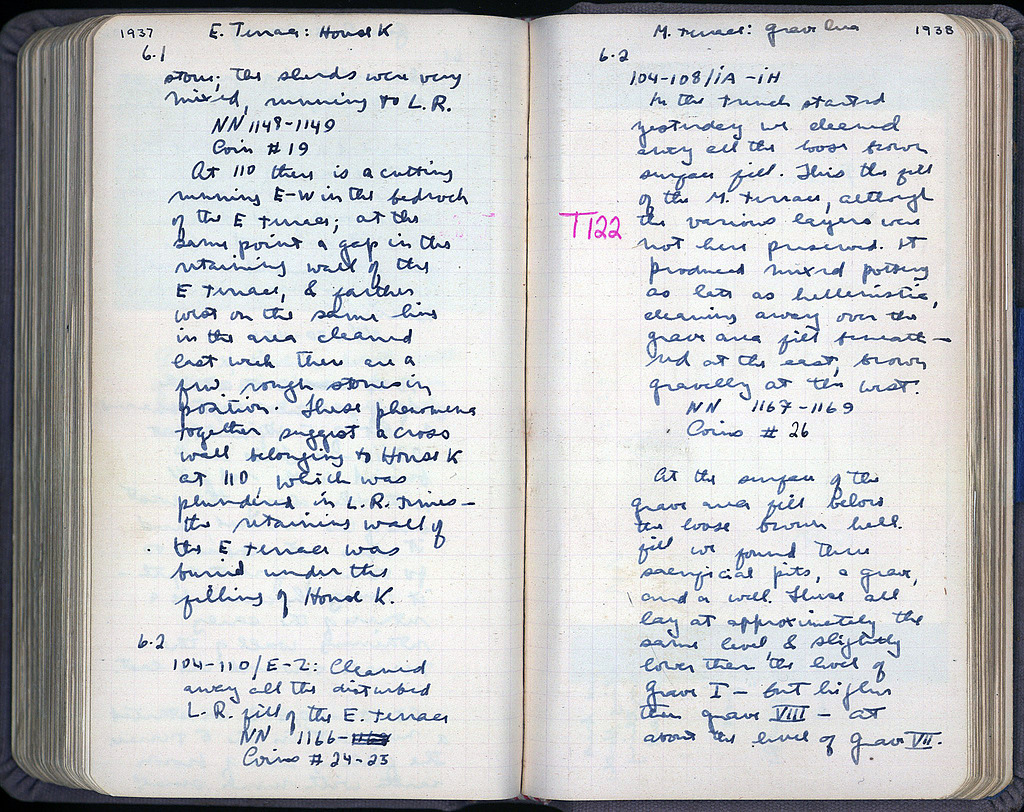 1937
E. Terrace: House K
6.1
stone; the sherds were very
mixed, running to L.R.
NN 1148-1149
Coin #19
At 110 there is a cutting
running E-W in the bedrock
of the E Terrace; at the
same point a gap in the
retaining wall of the
E Terrace, & farther
west on the same line
in the area cleaned
last week there are a
few rough stones in
position. These phenomena
together suggest a cross
wall belonging to House K
at 110, which was
plundered in L.R. times –
the retaining wall of
the E Terrace was
buried under the
filling of House K.
6.2
104-110/E-Z: Cleaned
away all the disturbed
L.R. fill of the E. Terrace
NN 1166-
Coins #24-25
M. Terrace: grave area
1938
6.2
104-108/iA-iH
In the trench started
yesterday we cleaned
away all the loose brown
surface fill. This the fill
of the M. Terrace, although
the various layers were
not here preserved. It
produced mixed pottery
as late as hellenistic,
cleaning away over the
grave area fill beneath –
red at the east, brown
gravelly at the west.
NN 1167-1169
Coins #26
T122
At the surface of the
grave area fill below
the loose brown hell.
fill we found three
sacrificial pits, a grave,
and a well. These all
lay at approximately the
same level, & slightly
lower than the level of
Grave I – but higher
than grave VIII – at
about the level of Grave VII.